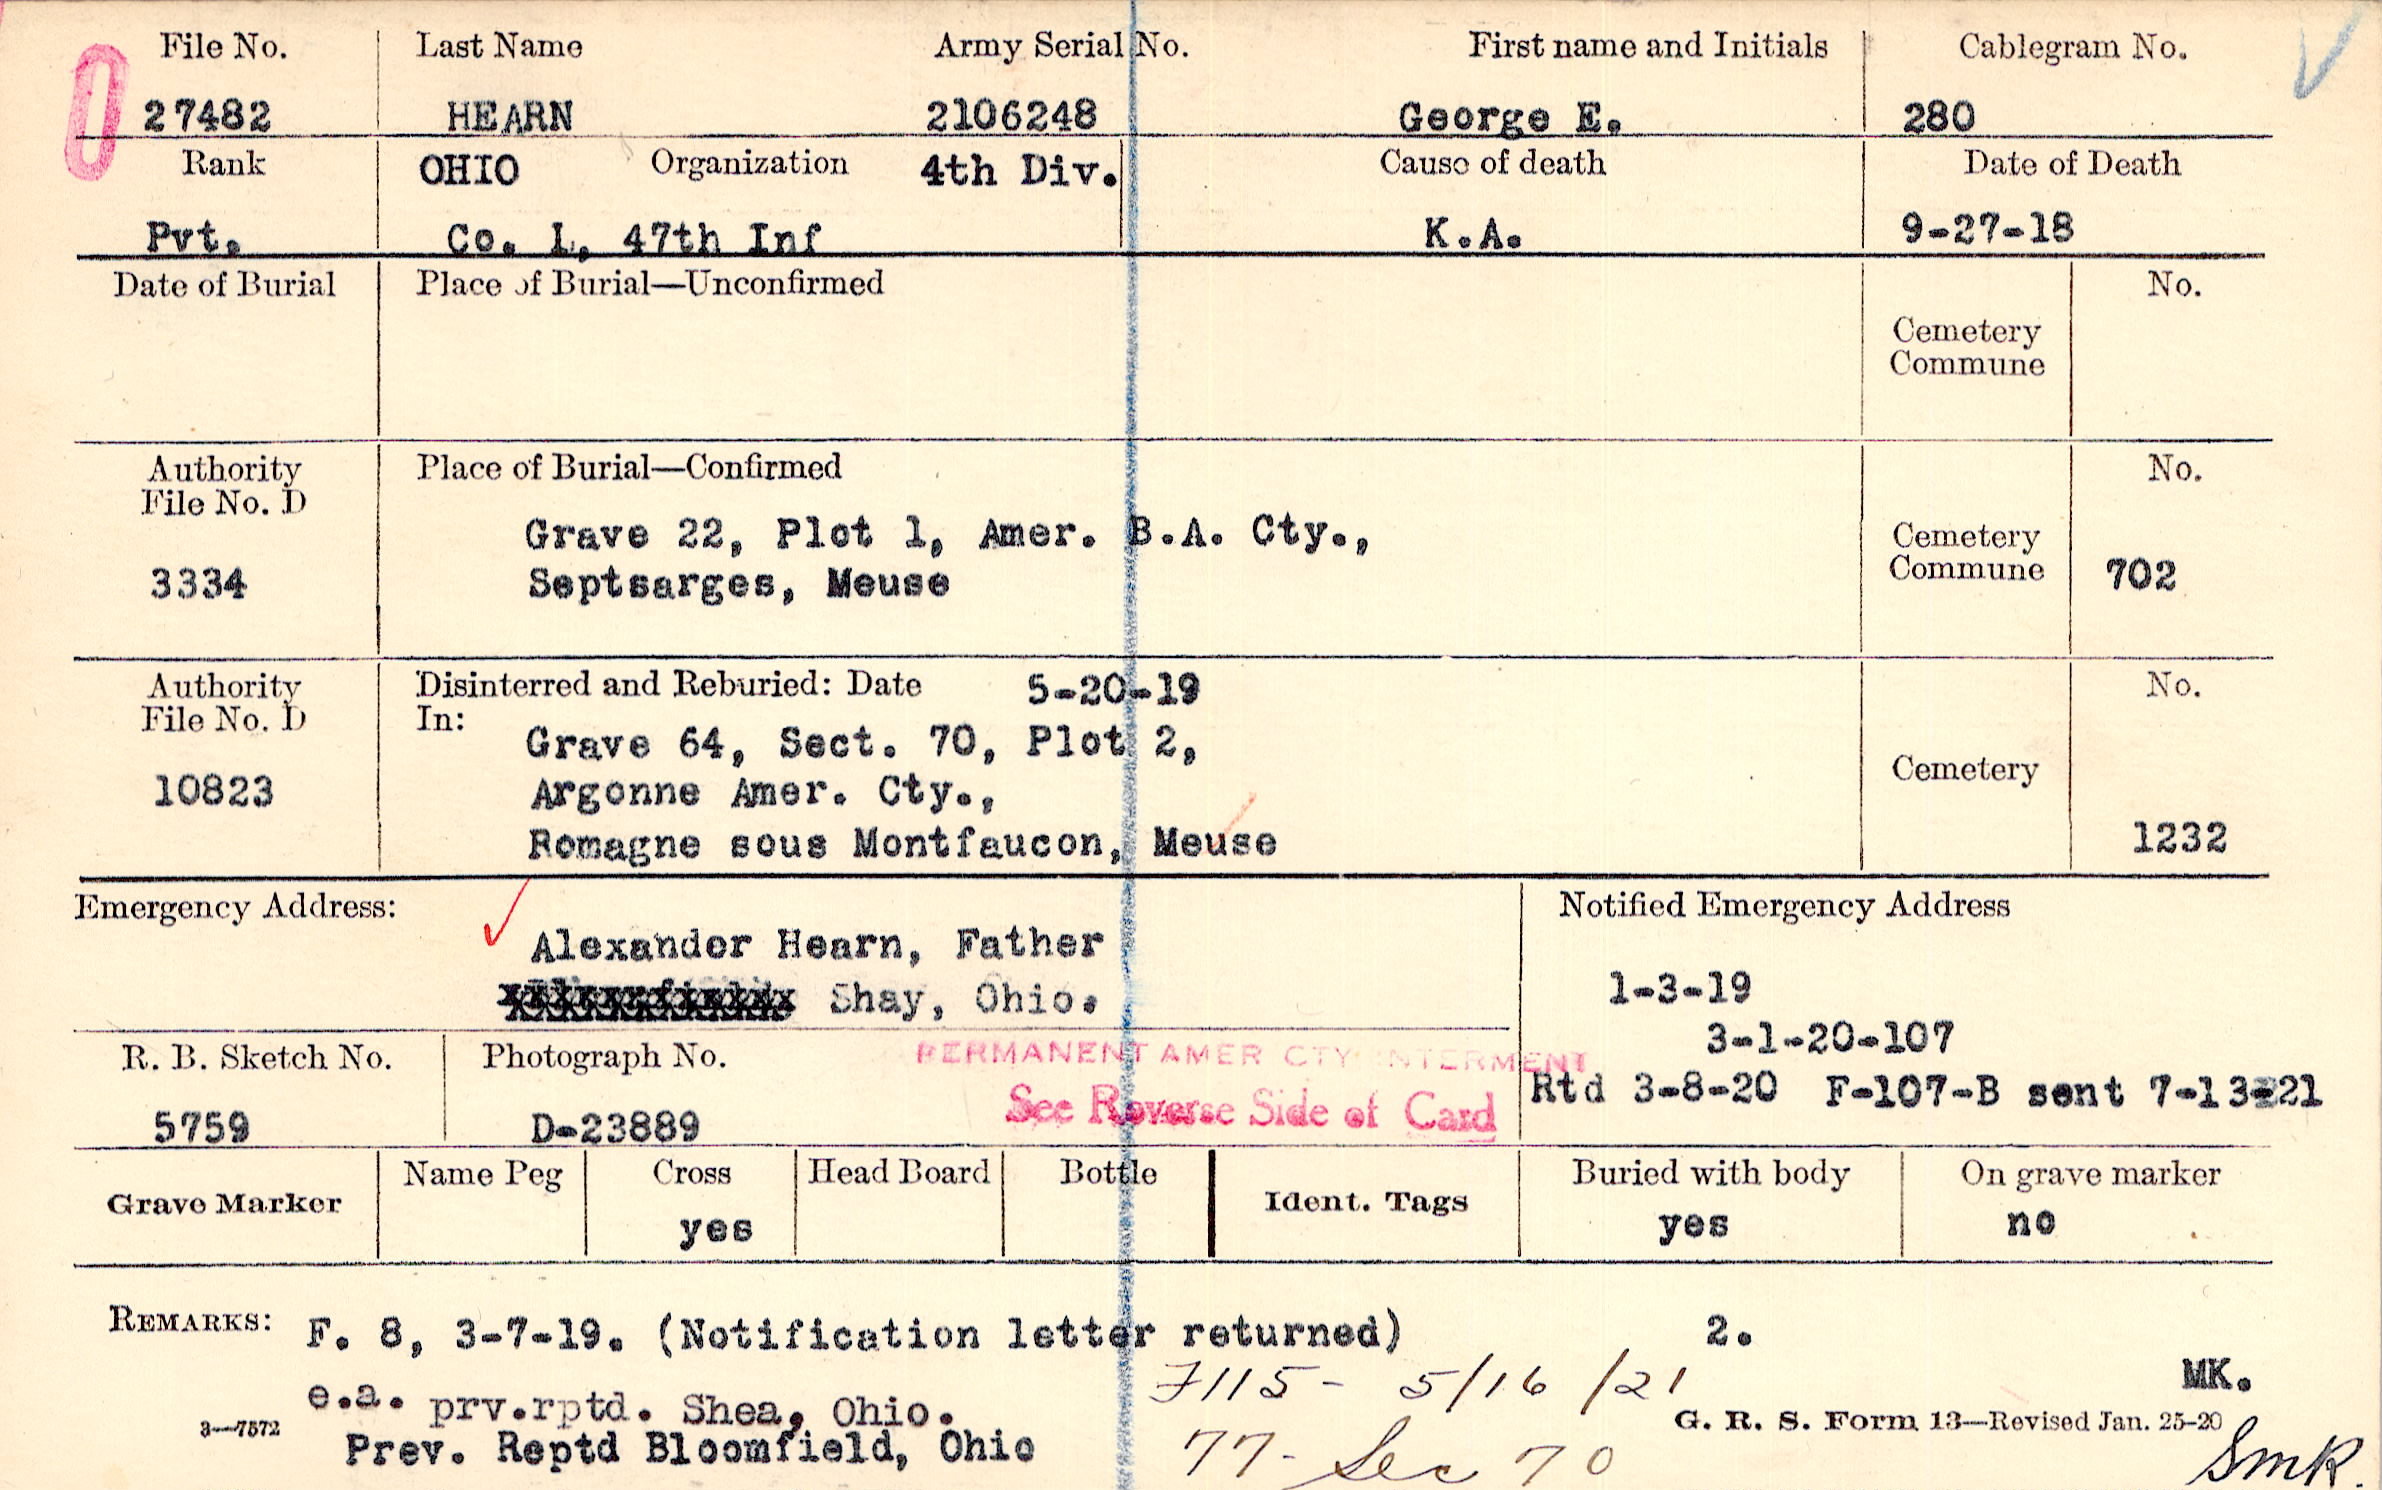 File No. Last Name Army Serial No. First name and Initials Cablegram No.
27482 HEARN 2106248 George E. 280
Rank OHIO Organization 4th Div. Cause of death Date of Death
Pvt. Co. L, 47th Inf K.A. 9-27-18
Date of Burial Place of Burial—Unconfirmed No.
Cemetery
Commune
Authority Place of Burial—Confirmed No.
File No. D
Grave 22, Plot 1, Amer. B.A. Cty., Cemetery
3334 Septsarges, Meuse Commune 702
Authority Disinterred and Reburied: Date 5-20-19 No.
File No. D In:
Grave 64, Sect. 70, Plot 2,
10823 Argonne Amer. Cty., Cemetery
Romagne sous Montfaucon, Meuse 1232
Emergency Address: Notified Emergency Address
Alexander Hearn, Father
Shay, Ohio. 1-3-19
3-1-20-107
R. B. Sketch No. Photograph No. PERMANENT AMER CTY INTERMENT
Rtd 3-8-20 F-107-B sent 7-13-21
See Reverse Side of Card
5759 D-23889
Grave Marker Name Peg Cross Head Board Bottle Ident. Tags Buried with body On grave marker
yes yes no
REMARKS: F. 8, 3-7-19. (Notification letter returned) 2.
F115- 5/16/21 MK.
e.a. prv.rptd. Shea, Ohio.
3—7572 G. R. S. Form 13—Revised Jan. 25-20
Prev. Reptd Bloomfield, Ohio 77- Sec 70 SmK.